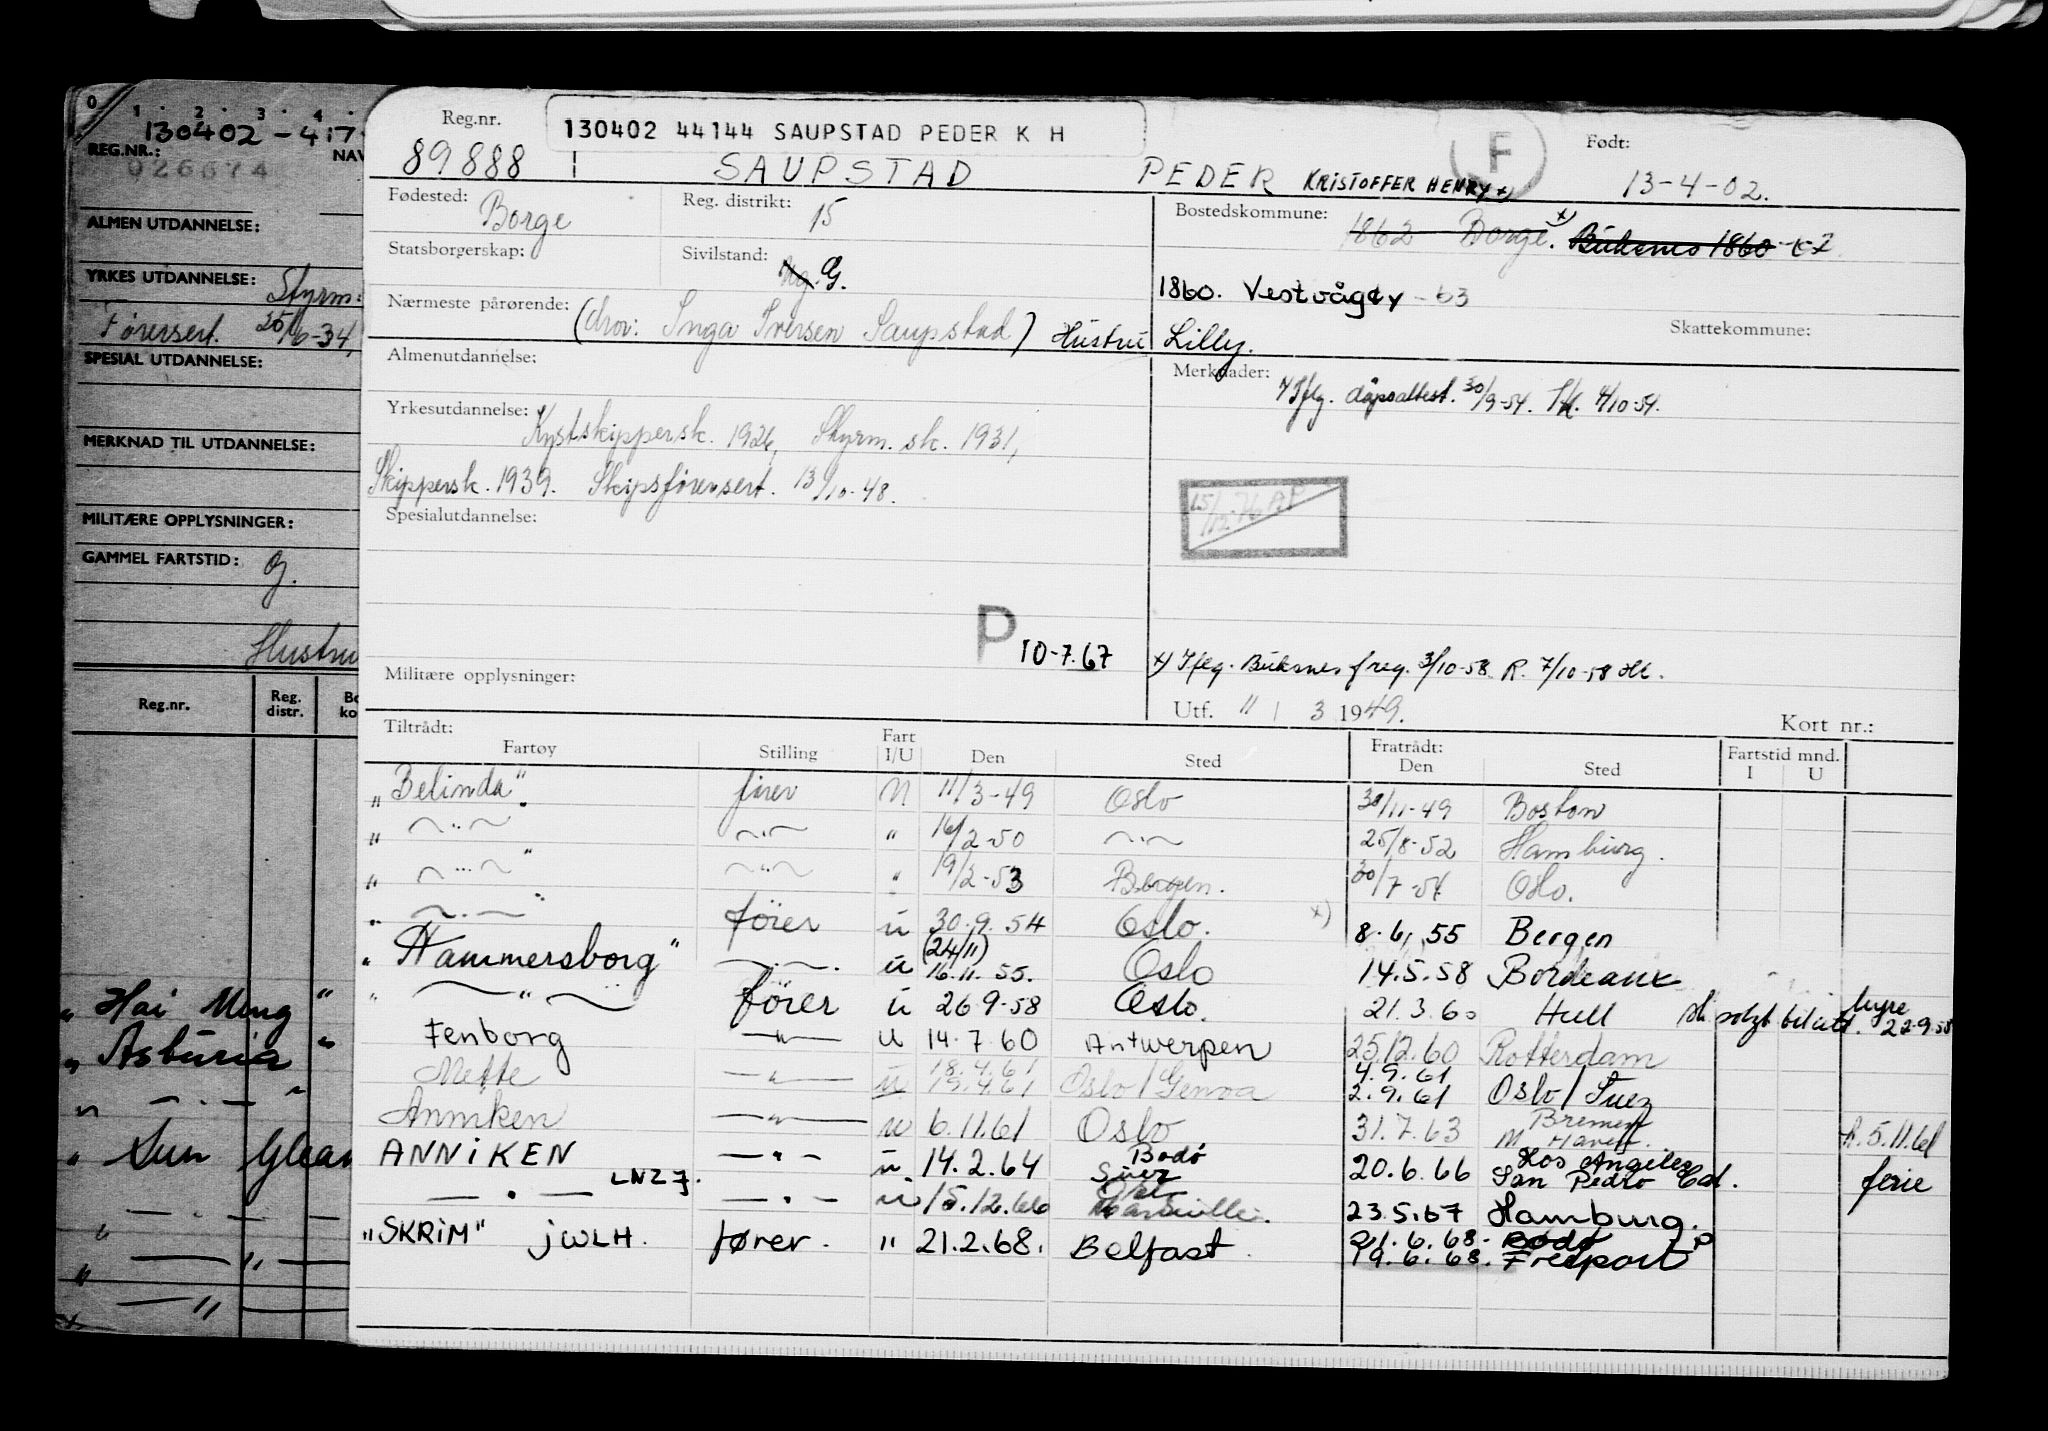 0 1 2 3 4
130402-417
REG.NR.: NAV
026674
ALMEN UTDANNELSE:
YRKES UTDANNELSE: Styrm:
Førersert. 25/6-34,
SPESIAL UTDANNELSE:
MERKNAD TIL UTDANNELSE:
MILITÆRE OPPLYSNINGER:
GAMMEL FARTSTID: Og.
Hustru
Reg.nr. Reg. distr. Bo ko
„ Hai Ming “
„ Asturia “
„ — . — “
„ Sun Glean
Reg.nr. 130402 44144 SAUPSTAD PEDER K H F Født:
89888 SAUPSTAD PEDER KRISTOFFER HENRY x) 13-4-02.
Fødested: Borge Reg. distrikt: 15 Bostedskommune: 1862 Borge. x) Buksnes 1860
Statsborgerskap: Sivilstand: Ug. G. 1860. Vestvågøy - 63
Nærmeste pårørende: (mor: Inga Iversen Saupstad) Hustru Lilly. Skattekommune:
Almenutdannelse: Merknader: x) Iflg. dåpsattest. 30/9-54. 4/10-54.
Yrkesutdannelse: Kystskippersk. 1926, Styrm.sk. 1931,
Skippersk. 1939. Skipsførersert. 13/10-48.
15/12-76 AP
Spesialutdannelse:
P 10-7.67 x) Iflg. Buksnes freg. 3/10-58 R. 7/10-58 HL.
Militære opplysninger: Utf. 11 / 3 1949. Kort nr.:
Tiltrådt: Fratrådt: Fartstid mnd.
Fartøy Stilling Fart I/U Den Sted Den Sted I U
„ Belinda“ fører U 11/3-49 Oslo 30/11-49 Boston
„ — “ — — “ — “ 16/2-50 — “ — 25/8-52 Hamburg.
„ — “ — “ — “ — “ 19/2-53 Bergen. 30/7-54 Oslo.
„ — . — “ fører u 30.9.54 Oslo. x) 8.6.55 Bergen
„ Hammersborg“ — . — . u (24/11) 16.11.55. Oslo 14.5.58 Bordeaux
„ — “ — fører u 26.9.58 Oslo. 21.3.60 Hull hyre 22.9.58
Fenborg — “ — u 14.7.60 Antwerpen 25.12.60 Rotterdam
Mette — “ — u 18.4.61 19.4.61 Oslo/Genoa 4.9.61 2.9.61 Oslo/Suez
Anniken — “ — u 6.11.61 Oslo 31.7.63 Bremen h.5.11.61
ANNiKEN — “ — u 14.2.64 Bodø Suez 20.6.66 Los Angeles San Pedro Cal. ferie
— . — LNZJ. — . — u 15.12.66 Oslo Marseille. 23.5.67 Hamburg.
„SKRiM“ jWLH. fører. “ 21.2.68. Belfast. 21.6.68. Bodø P
19.6.68. Freeport